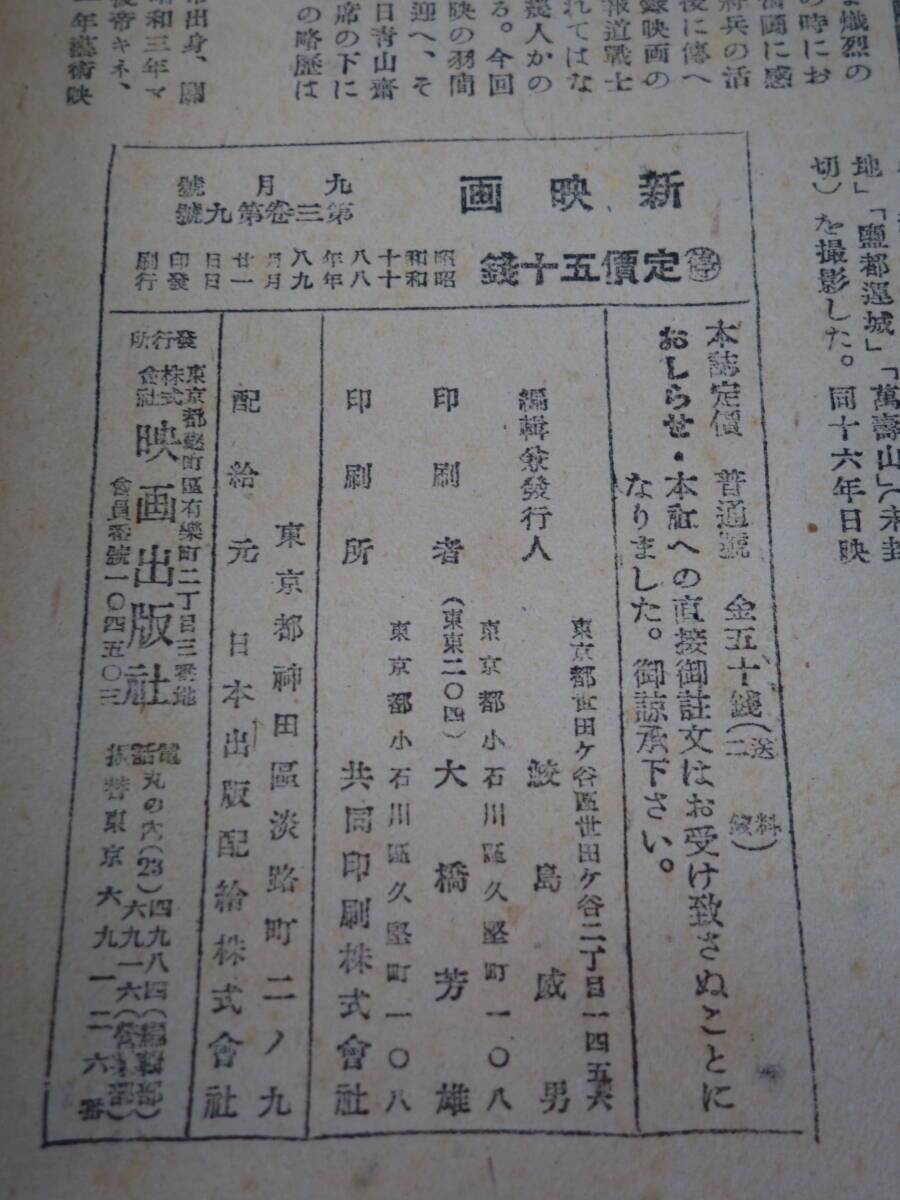 ま熾烈の
の時にお
奮闘に感
将兵の活
後に傳へ
録映画の
報道戰士
れてはな
幾人かの
る。今回
映の羽間
迎へ、そ
日青山齋
席の下に
の略歴は
帝出身、關
昭和三年マ
後帝キネ、
一年藝術映
地」「鹽都運城」「萬壽山」(未封
切)を撮影した。同十六年日映
新映画
九月號
第三卷第九號
㊡定價五十錢
昭和十八年八月廿日印刷
昭和十八年九月一日發行
本誌定價 普通號 金五十錢(送料二錢)
おしらせ・本社への直接御註文はお受け致さぬことに
なりました。御諒承下さい。
東京都世田ケ谷區世田ケ谷二丁目一四五六
編輯兼發行人 鮫島威男
東京都小石川區久堅町一〇八
印刷者(東東二〇四)大橋芳雄
東京都小石川區久堅町一〇八
印刷所 共同印刷株式會社
東京都神田區淡路町二ノ九
配給元 日本出版配給株式會社
發行所
東京都麴町區有樂町二丁目三番地
株式會社 映画出版社
會員番號一〇四五〇三
電話丸の內(23)四九八四(編輯部)
六九一六(營業部)
振替東京六九一二六番